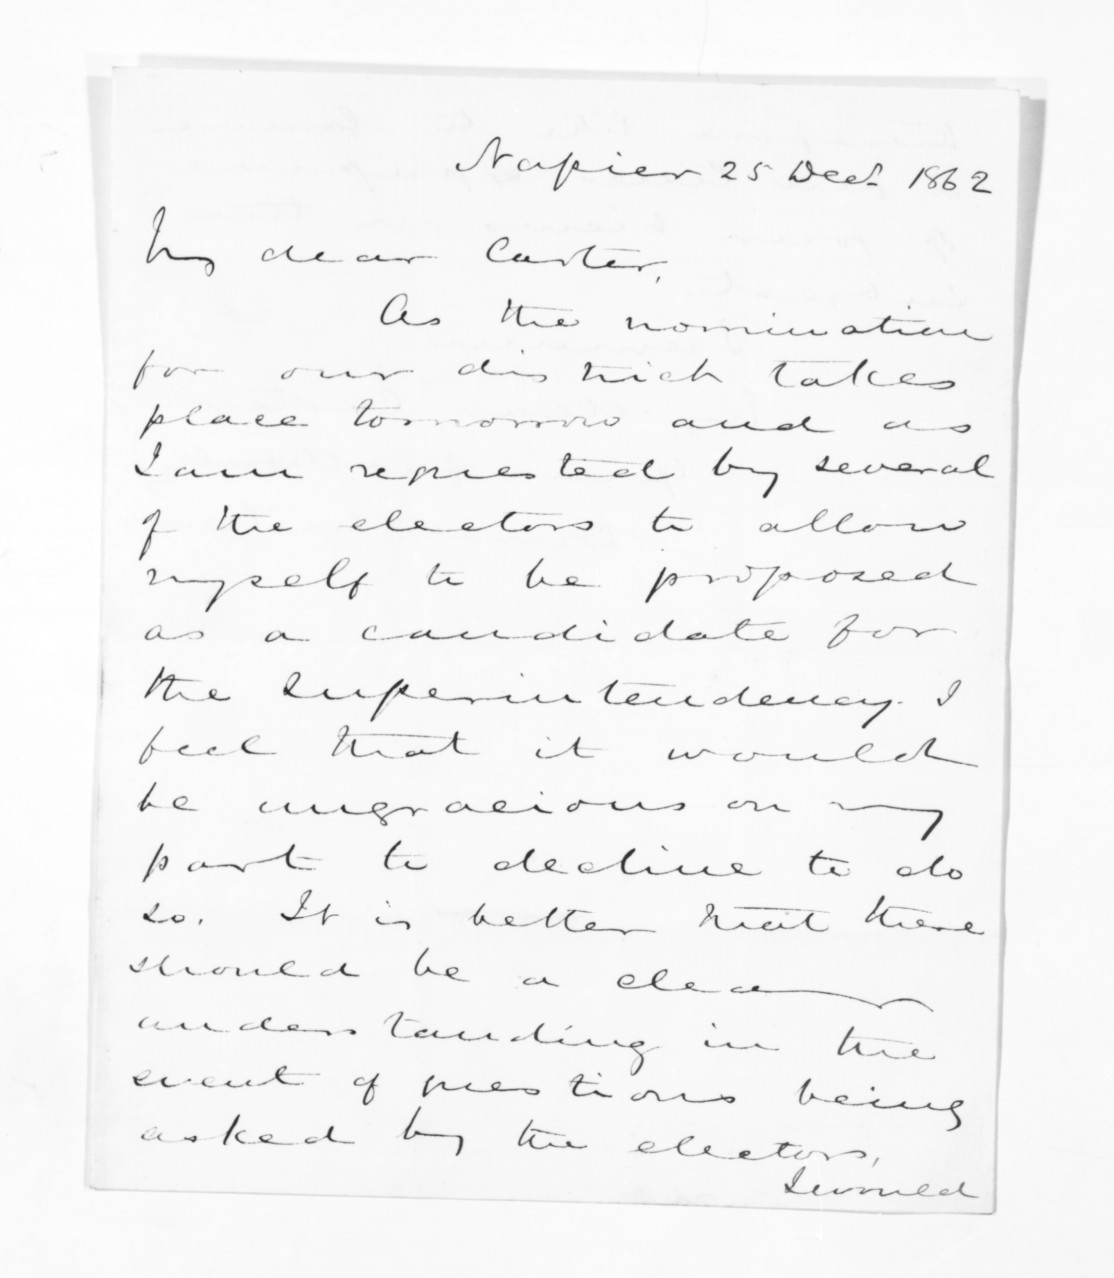 Napier 25 Decr. 1862
My dear Carter,
As the nomination
for our district takes
place tomorrow and as
I am requested by several
of the electors to allow
myself to be proposed
as a candidate for
the Superintendency. I
feel that it would
be ungracious on my
part to decline to do
so. It is better that there
should be a clear
understanding in the
event of questions being
asked by the electors,
I would